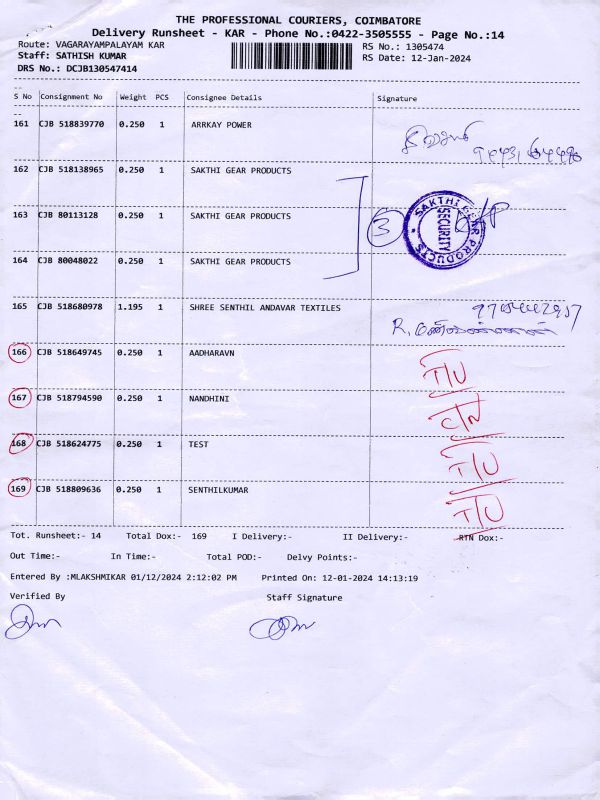 THE PROFESSIONAL COURIERS, COIMBATORE
Delivery Runsheet - KAR - Phone No.:0422-3505555 - Page No.:14
Route: VAGARAYAMPALAYAM KAR RS No.: 1305474
Staff: SATHISH KUMAR RS Date: 12-Jan-2024
DRS No.: DCJB130547414
S No Consignment No Weight PCS Consignee Details Signature
161 CJB 518839770 0.250 1 ARRKAY POWER
162 CJB 518138965 0.250 1 SAKTHI GEAR PRODUCTS
163 CJB 80113128 0.250 1 SAKTHI GEAR PRODUCTS
3
SAKTHI GEAR PRODUCTS SECURITY
164 CJB 80048022 0.250 1 SAKTHI GEAR PRODUCTS
165 CJB 518680978 1.195 1 SHREE SENTHIL ANDAVAR TEXTILES
166 CJB 518649745 0.250 1 AADHARAVN
167 CJB 518794590 0.250 1 NANDHINI
168 CJB 518624775 0.250 1 TEST
169 CJB 518809636 0.250 1 SENTHILKUMAR
Tot. Runsheet:- 14 Total Dox:- 169 I Delivery:- II Delivery:- RTN Dox:-
Out Time:- In Time:- Total POD:- Delvy Points:-
Entered By :MLAKSHMIKAR 01/12/2024 2:12:02 PM Printed On: 12-01-2024 14:13:19
Verified By Staff Signature